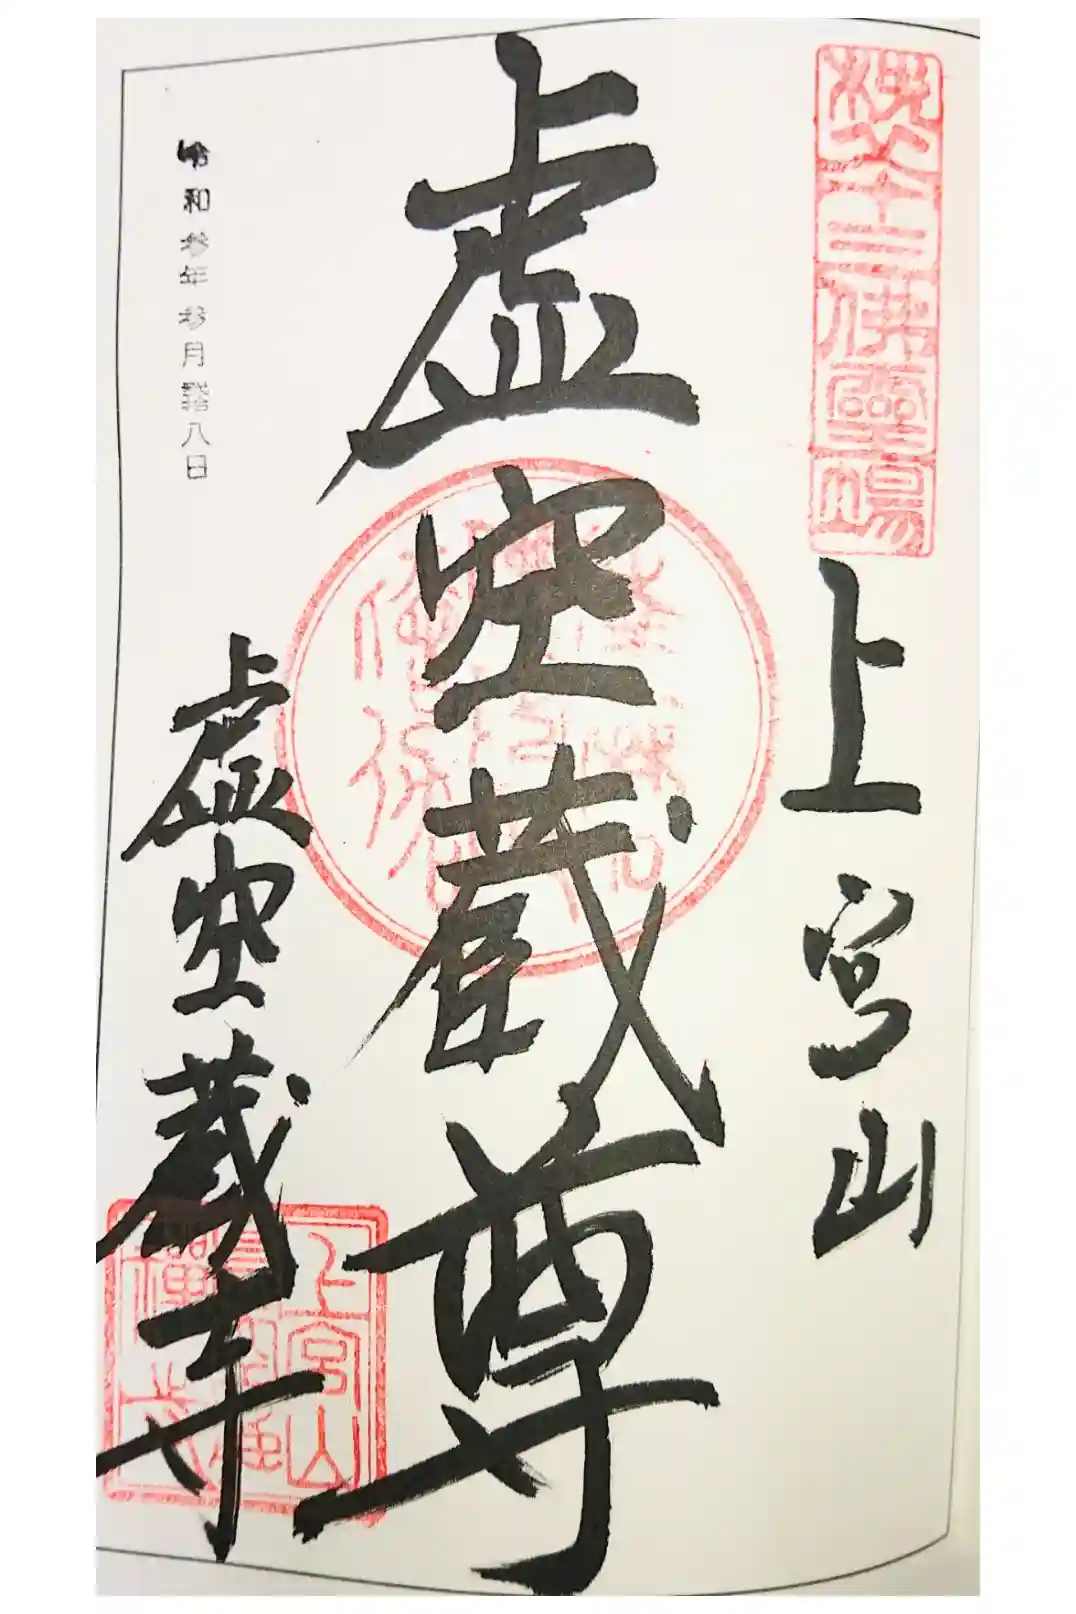 佛靈場
上宮山
虚空蔵尊
令和参年参月八日
虚空蔵寺
上宮山